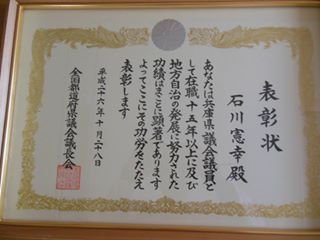 表彰状
石川憲幸殿
あなたは兵庫県議会議員と
して在職十五年以上に及び
地方自治の発展に努力された
功績はまことに顕著であります
よってここにその功労をたたえ
表彰します
平成二十六年十月二十八日
全国都道府県議会議長会